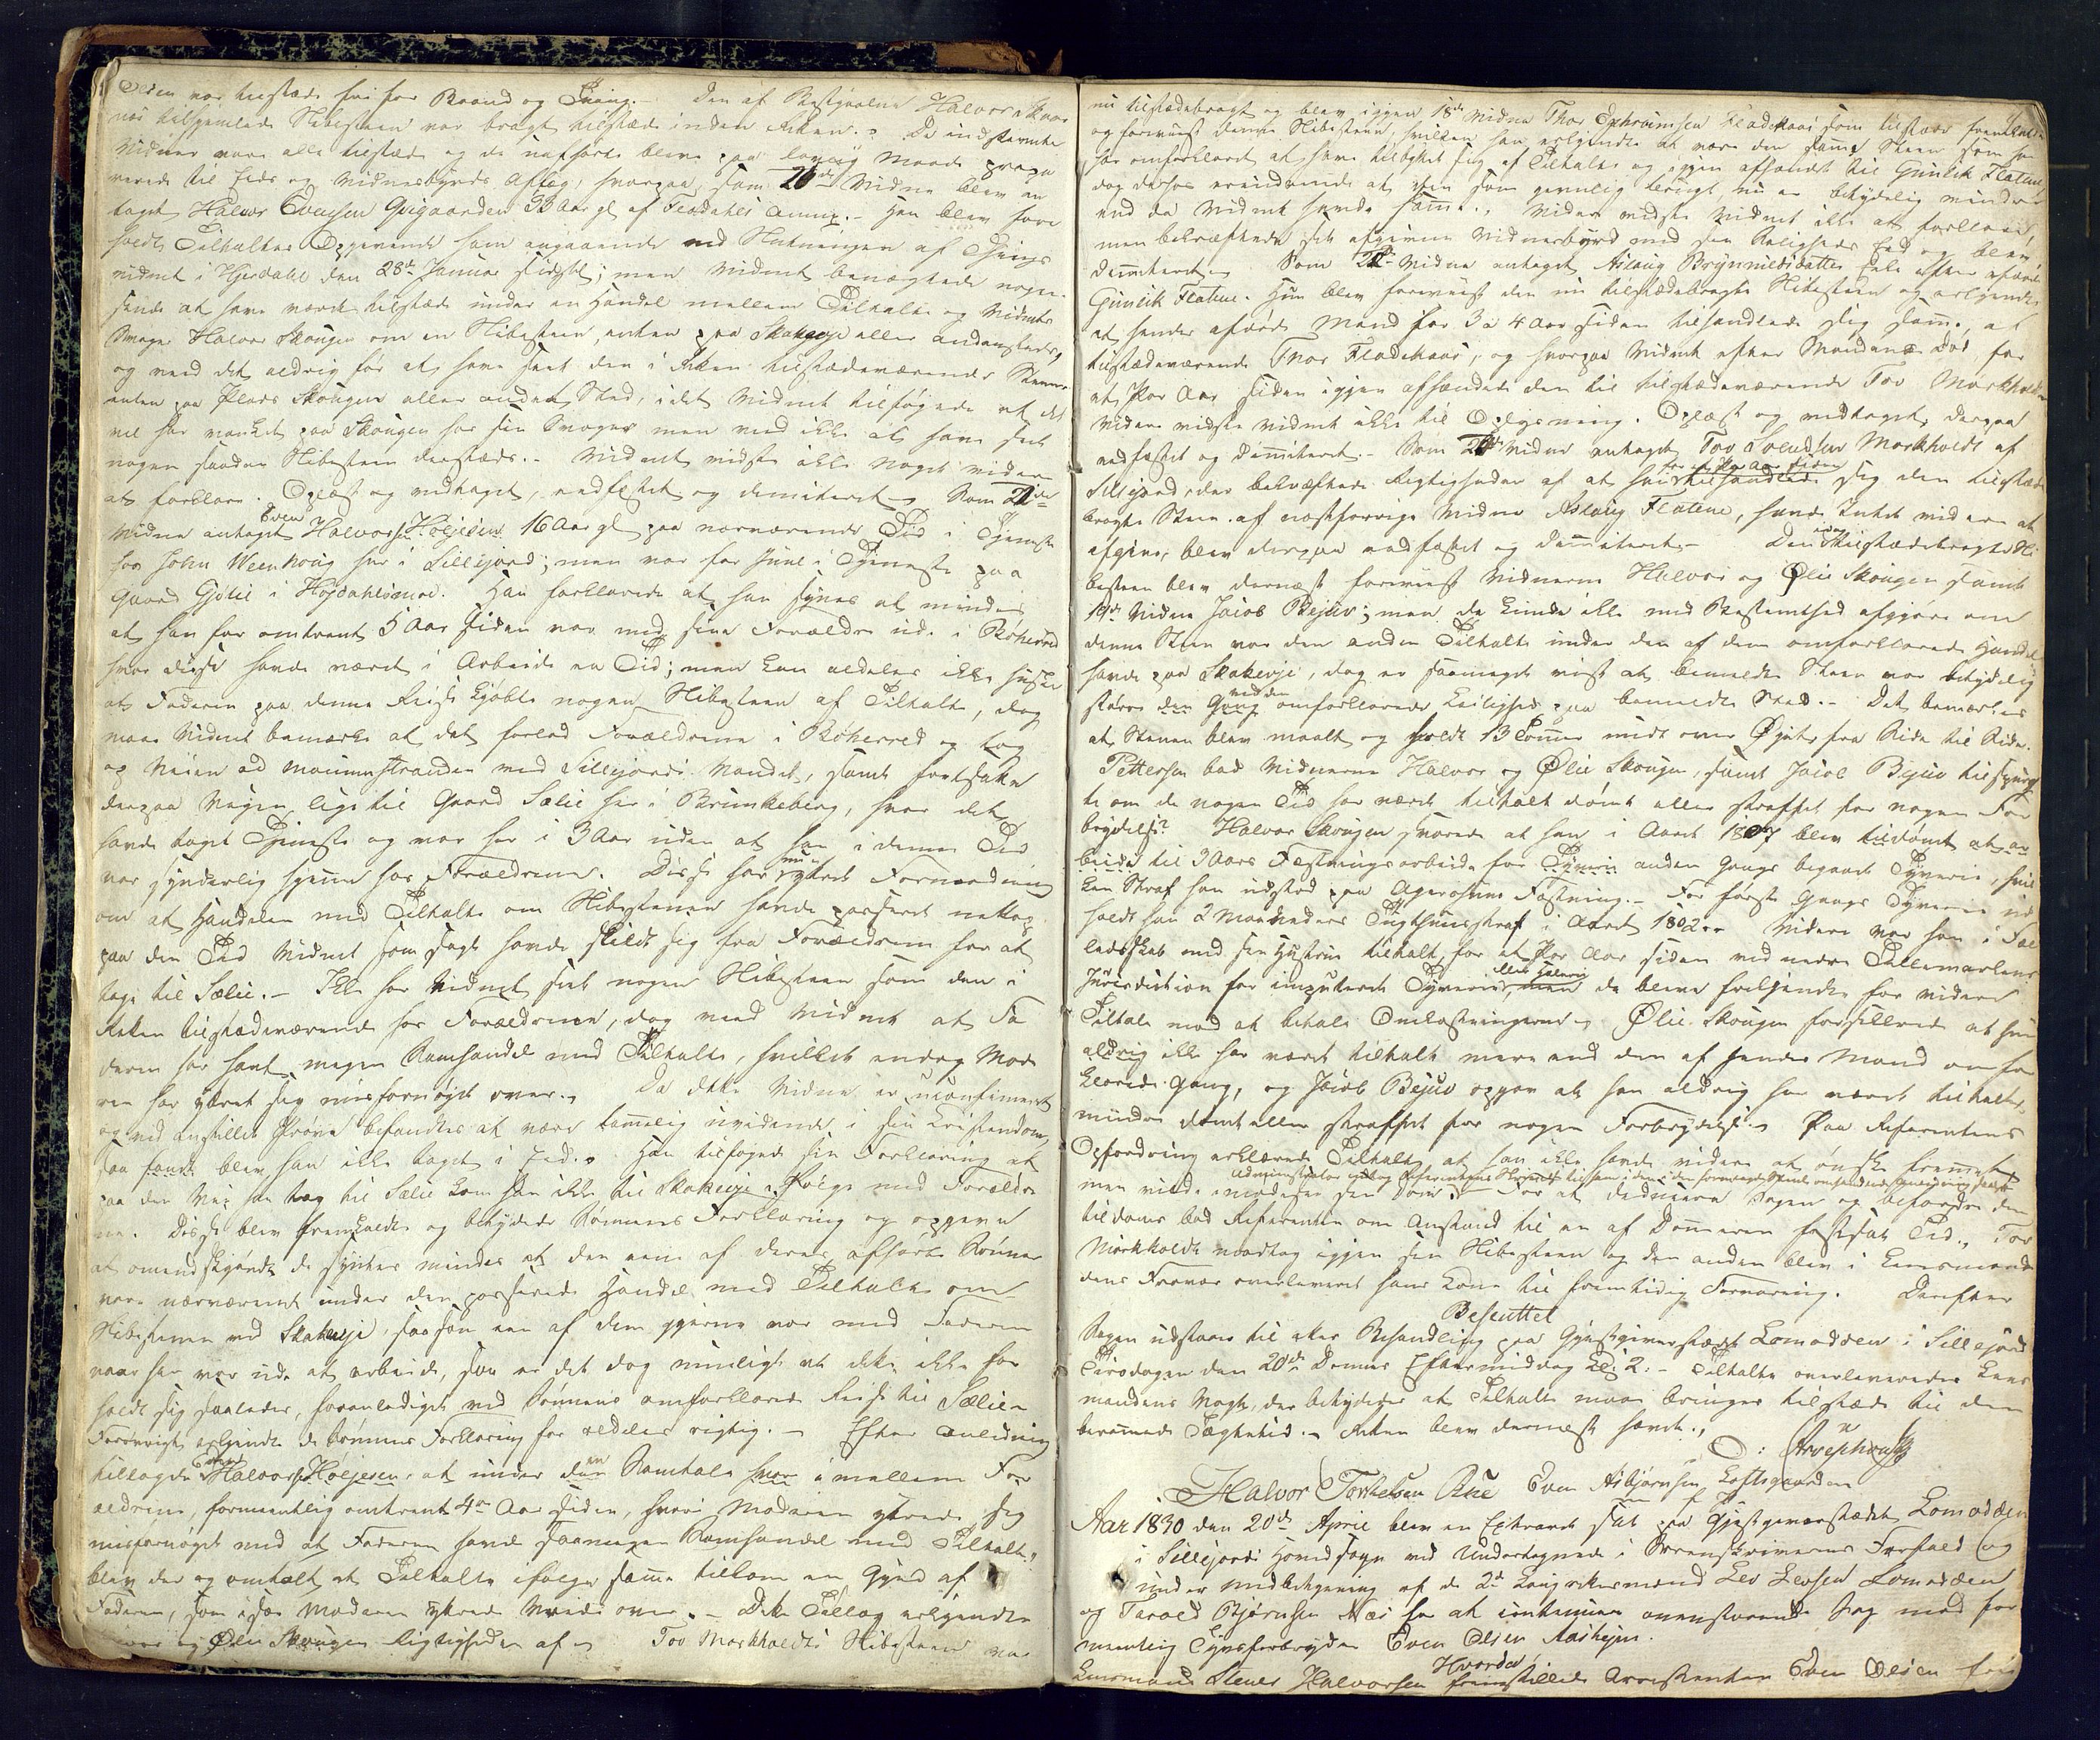 Olsen var tilstæde fri for Baand og Tvang. – Den af Bestyreren Halvor Skou-
nes hidsendte Hibesteen var bragt tilstæde inden Retten. De indstævnte
Vidner vare alle tilstæde og de uafhørte bleve paa lovlig Maade præpa
rerede til Eeds og Vidnesbyrds Aflæg, hvorpaa som 20de Vidne blev an
taget Halvor Evensen Qvigaarden 33 Aar gl af Flesdahls Annex. – Han blev fore
holdt Tiltaltes Opgivende ham angaaende ved Slutningen af Things
vidnet i Hjerdahl den 28de Januar sidstl; men Vidnet benægtede nogen-
sinde at have været tilstæde under en Handel mellem Tiltalte og Vidnets
Svoger Halvor Skougen om en Hibesteen, enten paa Skakerje eller andensteds,
og veed ikke aldrig før at have seet den i Retten tilstædeværende Steen
enten paa Plads Skougen eller andet Sted, idet Vidnet tilføyede at det
vel har vanket paa Skougen hos sin Svoger men veed ikke at have seet
nogen saadan Hibesteen dersteds. – Vidnet vidste ikke noget videre
at forklare. Oplæst og vedtaget, eedfæstet og dimitteret. Som 21de
Vidne antaget Even Halvorsen Holjesen 16 Aar gl paa nærværende Tid i Tjeneste
hos John Weenhoug her i Sillejord; men var før Juul i Tjeneste paa
Gaard Gjølie i Høydalsmoe. Han forklarede at han synes at mindes
at han for omtrent 5 Aar siden var med sine Forældre ud i Bøherred
hvor disse havde været i Arbeide en Tid; men kan aldeles ikke huske
at Faderen paa denne Reise kjøbte nogen Hibesteen af Tiltalte, dog
maae Vidnet bemærke at det forlod Forældrene i Bøherred og tog
op Veien ad Maurnstranden med Sillejords Vandet, samt fortsatte
derpaa Veyen lige til Gaard Sælie her i Brunkeberg, hvor det
havde taget Tjeneste og var her i 3 Aar uden at han i denne Tid
var synderlig hjemme hos Forældrene. Disse har nu yttret Formodning
om at Handelen med Tiltalte om Hibestenen havde passeret netop
paa den Tid Vidnet som sagt havde skildt sig fra Forældrene for at
tage til Sælie. – Ikke har Vidnet seet nogen Hibesteen som den i
Retten tilstædeværende hos Forældrene, dog veed Vidnet at Fa
deren har havt megen Samhandel med Tiltalte, hvilket endog Mode
ren har yttret sig misfornøyet over. Da dette Vidne er uconfirmeret
og ved anstillet Prøve befandtes at være temmelig uvidende i sin Cristendom,
saa fandt blev han ikke taget i Eed. Han tilføyede sin Forklaring at
paa den Vey han tog til Sælie kom han ikke til Skakerje i Følge med Forældre
ne. Disse blev fremkaldte og betydede Sønnens Forklaring og opgave
at omendskjøndt de syntes mindes at den eene af deres afhørte Sønner
vare nærværende under den passerede Handel med Tiltalte om
Hibestenen ved Skakerje, saasom een af dem gjerne var med Faderen
naar han var ude at arbeide, saa er det dog mueligt at dette ikke har
holdt sig saaledes, foranlediget ved Sønnens omforklarede Reise til Sælie.
Forøvrigt erkjendte de Sønnens Forklaring for aldeles rigtig. – Efter Anledning
tillagde Even Halvors: Holjesen, at under den en Samtale hvor imellem For
ældrene, formeentlig omtrent 4re Aar siden, hvori Moderen yttrede sig
misfornøyet med at Faderen havde saamegen Samhandel med Tiltalte,
blev der og omtalt at Tiltalte ifølge samme tilkom en Gjeld af
Faderen, som især Moderen yttrede Vrede over. – Dette Tillæg erkjendte
Halvor og Ølie Skougen Rigtigheden af. Tov Morkholdts Hibesteen var
nu tilstædebragt og blev igjen 18de Vidne Thor Ephraimsen Fladekaas som tilstæde fremkaldt
og foreviist denne Hibesteen, hvilken han erkjendte at være den samme Steen som han
har omforklaret at have tilbyttet sig af Tiltalte og igjen afhændet til Gunlik Flatene,
dog derfor erindrende at den som gevnlig brugt, nu er betydelig mindre
end da Vidnet havde samme. Videre vidste Vidnet ikke at forklare,
men bekræftede sit afgivne Vidnesbyrd med sin Saligheds Eed og blev
demitteret. Som 22de Vidne antaget Aslaug Brynnildsdatter Enke efter afdøde
Gunlik Flatene. Hun blev foreviist den nu tilstædebragte Hibesteen og erkjendte
at hendes afdøde Mand for 3 a 4 Aar siden tilhandlede sig samme, af
tilstædeværende Thor Fladekaas, og hvorpaa Vidnet efter Mandens Død for
et Par Aar siden igjen afhændede den til tilstædeværende Tov Morkholdt.
Videre vidste Vidnet ikke til Oplysning. Oplæst og vedtaget, derpaa
eedfæstet og demitteret. – Som 23de Vidne antaget Tov Svendsen Morkholdt af
Sillejord, der bekræftede Rigtigheden af at have for et Par Aar siden tilhandlede sig den tilstæde
bragte Steen af næstforrige Vidne Aslaug Flatene, havde Intet videre at
afgive, blev derpaa eedfæstet og demitteret. – Den idag tilstædebragte Hi
besteen blev dernæst foreviist Vidnerne Halvor og Ølie Skougen samt
19de Vidne Jacob Bejuv; men de kunde ikke med Bestemthed afgjøre om
denne Steen var den anden Tiltalte under den af dem omforklarede Handel
havde paa Skakerje, dog er saameget vist at bemeldte Steen var betydelig
større den Gang ved den omforklarede Leilighed paa bemeldte Sted. – Det bemærkes
at Stenen blev maalt og holdt 13 Tommer midt over Øyet fra Side til Side.
Pettersen bad Vidnerne Halvor og Ølie Skougen, samt Jacob Bejuv tilspurg
te om de nogen Tid har været tiltalt dømt eller straffet for nogen For
brydelse? Halvor Skougen svarede at han i Aaret 1807 blev tildømt at ar
beide til 3 Aars Fæstningsarbeide for Tyverie anden Gangs begaaet Tyverie, hvil
ken Straf han udstod paa Agershuus Fæstning. – For første Gangs Tyverie ud
holdt han 2 Maaneders Tugthuusstraf i Aaret 1802. Videre var han i Fæl
ledsskab med sin Hustrue tiltalt, for et Par Aar siden ved nedre Tellemarkens
Jurisdiction for imputeret Tyverie, eller Heleri, men de bleve frikjendte for videre
Tiltale mod at betale Omkostningerne. Ølie Skougen forsikkrede at hun
aldrig ikke har været tiltalt mere end den af hendes Mand omfor
klarede Gang, og Jacob Bejuv opgav at han aldrig har været tiltalt,
mindre dømt eller straffet for nogen Forbrydelse. Paa Referentens
Opfordring erklærede Tiltalte at han ikke havde videre at ønske fremmet
men vilde imødesee sin Dom. – For at deducere Sagen og befordre den
til Doms bad Referenten om Anstand til en af Dommeren fastsat Tid. Tov
Morkholdt modtog igjen sin Hibesteen og den anden blev i Lensmand
dens Forvar overleveret hans Kone til fremtidig Forvaring. Derefter
Besluttet
Sagen udstaaer til Actes Behandling paa Gjæstgiverstædet Lomodden i Sillejord
Tirsdagen den 20de Dennes Eftermiddag Kl: 2. – Tiltalte overleveredes Lens
mandens Vagt, der betydedes at Tiltalte maae bringes tilstæde til den
berammede Tægtetid. – Retten blev dernæst hævet.
Arvesschoug
Halvor Torkelsen Rue Even Asbjørnsen Loftsgaarden
Aar 1830 den 20de April blev en Extraret sat paa Gjæstgiverstædet Lomodden
i Sillejords Hovedsogn ved Undertegnede i Sorenskriverens Forfald og
under Medbetjening af de 2de Laugrettesmænd Lev Levsen Lomodden
og Tarald Bjørnsen Næs for at continuere ovenstaaende Sag mod for
meentlig Tyvsforbryder Even Olsen Aashejm.
Hvorda
Lensmand Stener Halvorsen fremstillede Arrestanten Even Olsen fri